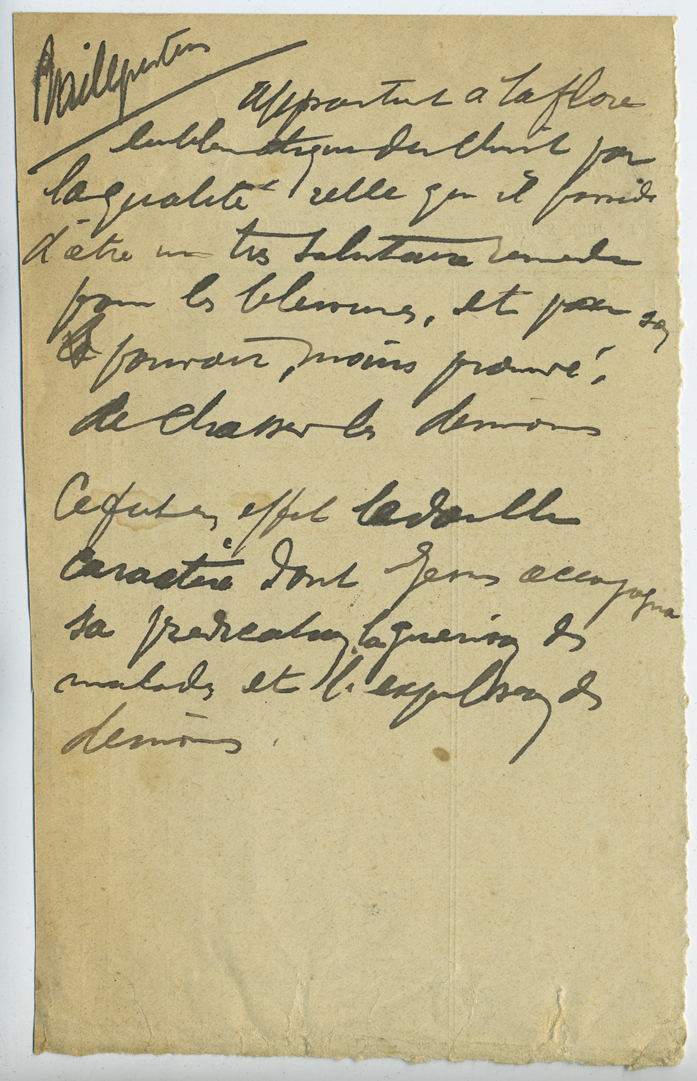 Millepertuis
appartient à la flore
emblématique du Christ par
la qualité réelle qu'il possède
d'être un très salutaire remède
pour les blessures, et pour son
pouvoir, moins prouvé,
de chasser les démons
Ce fut en effet le double
caractère dont Jésus accompagna
sa prédication, la guérison des
malades et l'expulsion des
démons.